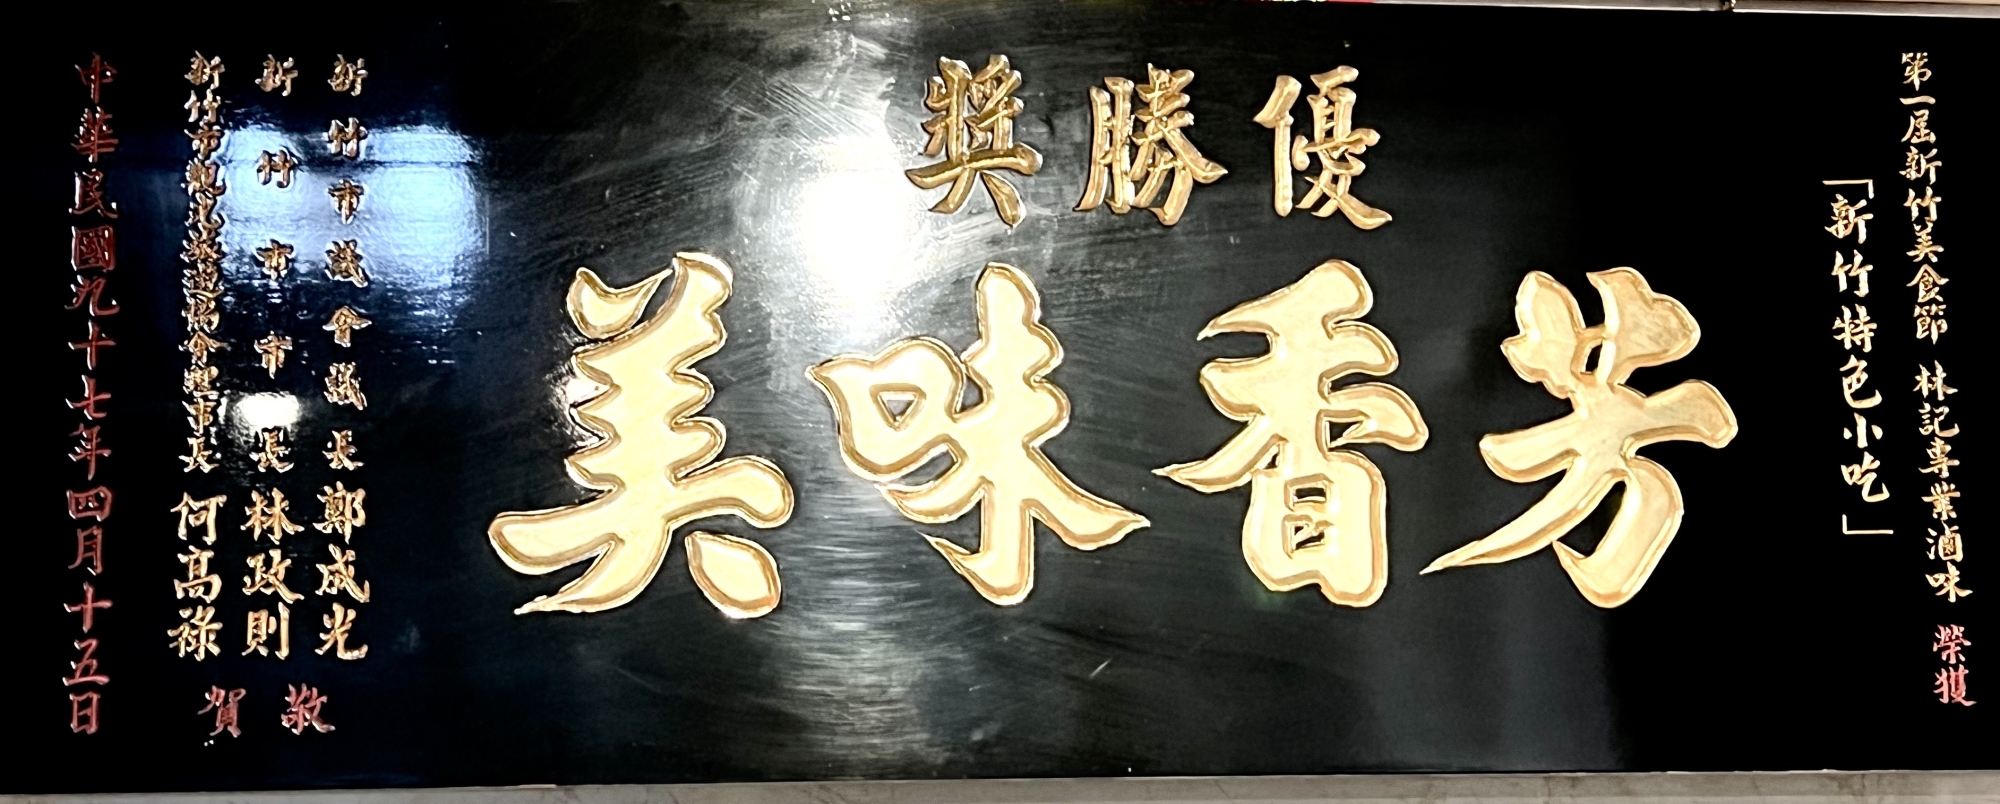 第一屆新竹美食節 林記專業滷味 榮獲
「新竹特色小吃」
優勝獎
芳香味美
新竹市議會議長 鄭成光
新竹市市長 林政則
新竹市觀光旅遊協會理事長 何高祿
敬賀
中華民國九十七年四月十五日